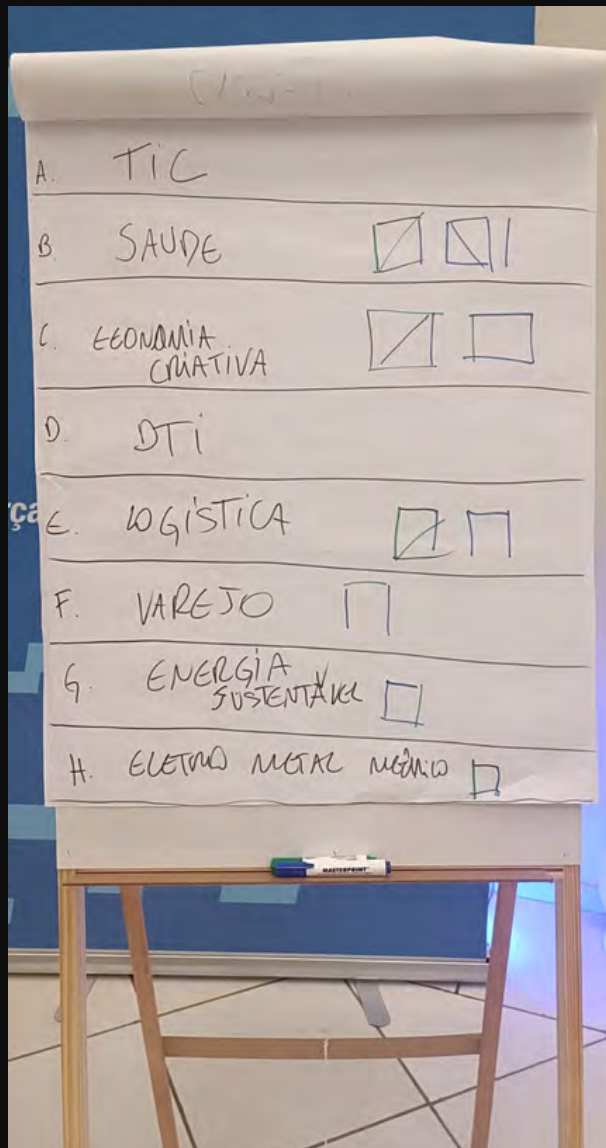 A. TiC
B. SAUDE
C. ECONOMIA
CRIATIVA
D. DTi
ça
E. LOGiSTiCA
F. VAREJO
G. ENERGiA
SUSTENTÁVEL
H. ELETRO METAL
MASTERPRINT